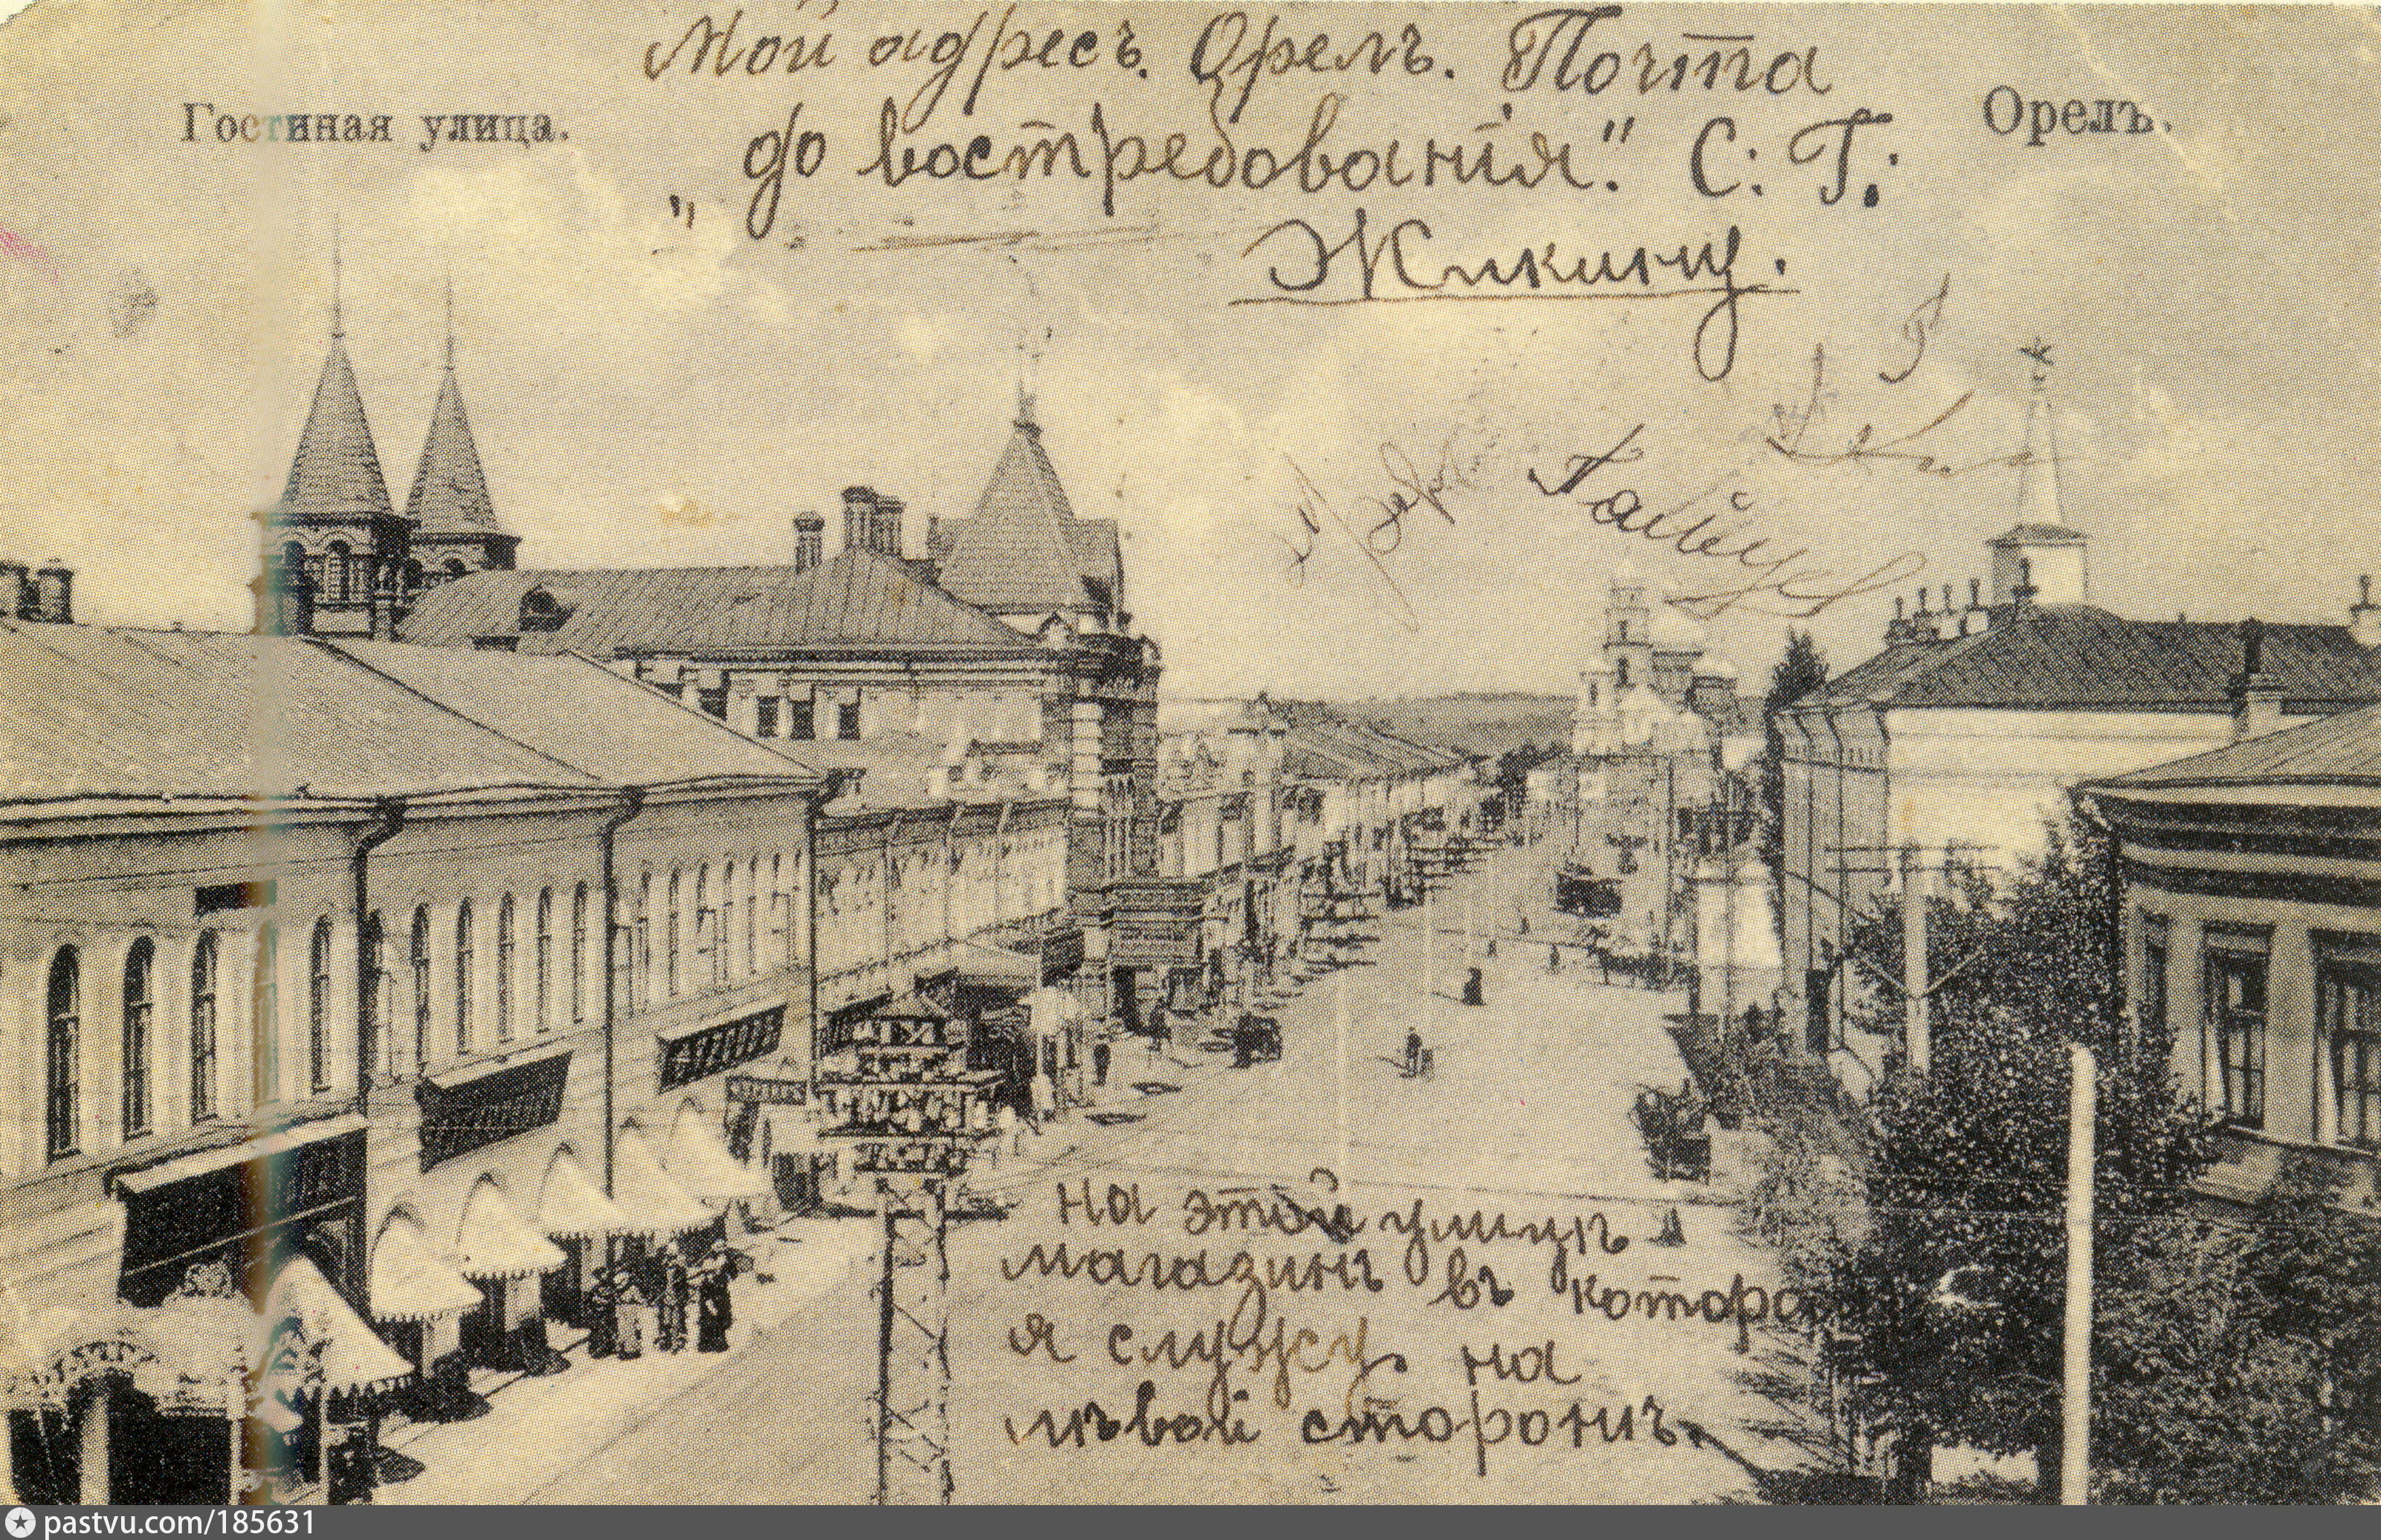 Мой адресъ. Орелъ. Почта
Гостиная улица.
Орелъ.
„до востребованiя." С. Г.
Жикину.
на этой улицѣ
магазинъ въ которо
я служу на
лѣвой сторонѣ.
pastvu.com/185631